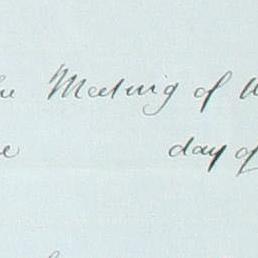 Meeting of
day of